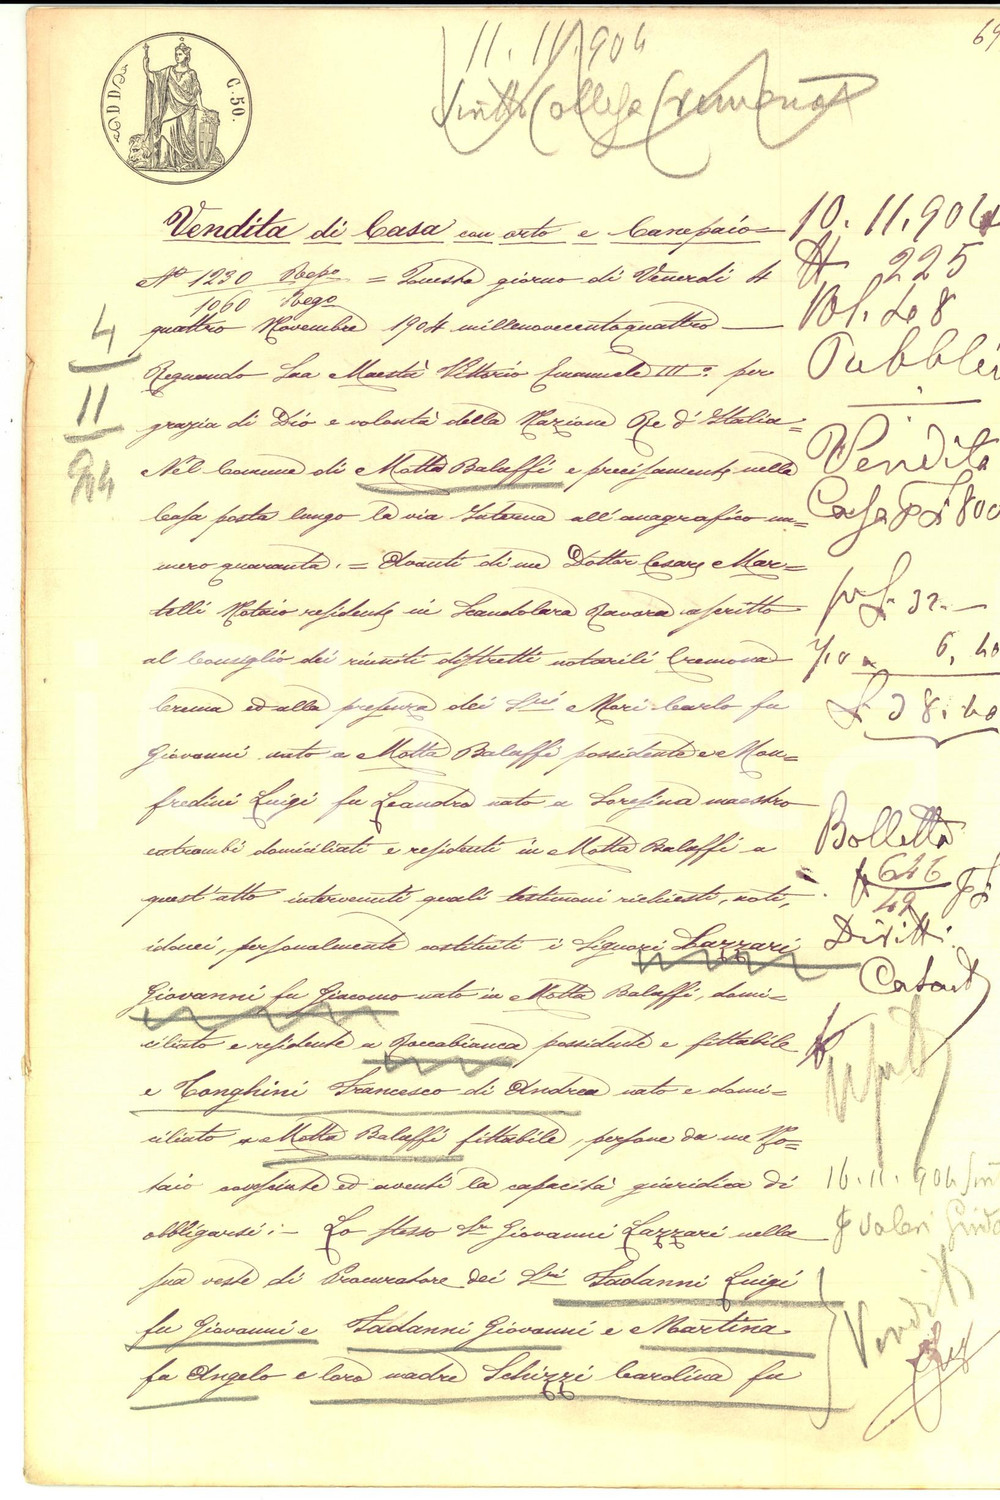 69
C. 50.
11. 11. 904
Collega Cremona
Vendita di Casa con orto e Canepaio=
N° 1230 Repo = Questo giorno di Venerdi 4
1060 Rego
quattro Novembre 1904 millenovecentoquattro
Regnando Sua Maestà Vittorio Emanuele III° per
grazia di Dio e volontà della Nazione Re d'Italia=
Nel Comune di Motta Baluffi e precisamente nella
Casa posta lungo la via Interna all'anagrafico nu=
mero quaranta. = Avanti di me Dottor Cesare Mar=
telli Notaio residente in Scandolara Ravara ascritto
al Consiglio dei riuniti distretti notarili Cremona
Crema ed alla presenza dei Sri Mori Carlo fu
Giovanni nato a Motta Baluffi possidente e Man=
fredini Luigi fu Leandro nato a Soresina maestro
entrambi domiciliati e residenti in Motta Baluffi a
quest'atto intervenuti quali testimoni richiesti, noti,
idonei, personalmente costituiti i Signori Lazzari
Giovanni fu Giacomo nato in Motta Baluffi, domi=
ciliato e residente a Roccabianca possidente e fittabile
e Conghini Francesco di Andrea nato e domi=
ciliato a Motta Baluffi fittabile, persone da me No=
taio conosciute ed aventi la capacità giuridica di
obbligarsi: - Lo stesso Sr Giovanni Lazzari nella
sua veste di Procuratore dei Sri Tadanni Luigi
fu Giovanni e Tadanni Giovanni e Martina
fu Angelo e loro madre Schizzi Carolina fu
4
11
904
10. 11. 904
N 225
Vol. 48
Pubblici
Vendita
Casa £ 800
32.-
6, 40
£ 38. 40
Bolletta
N 646
49
Diritti
Catast
16. 11. 904
Valeri Guido
Vendit